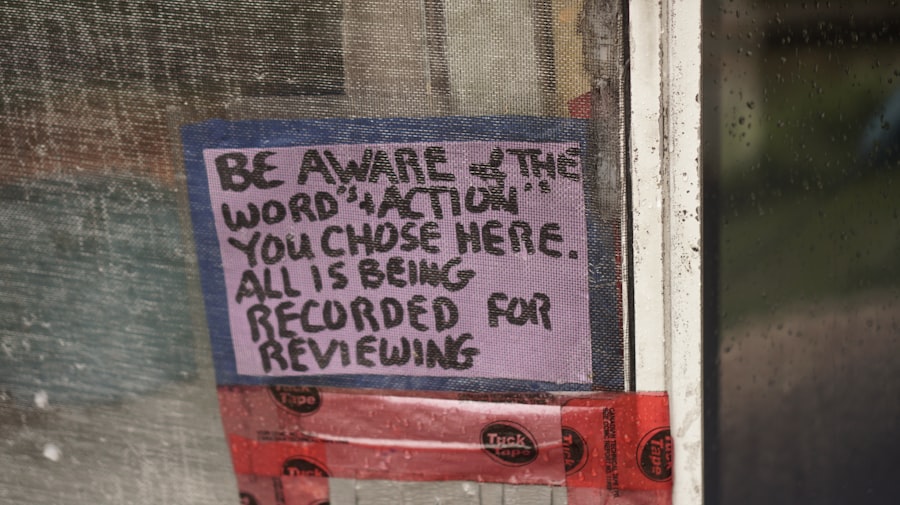 BE AWARE of THE
WORD"+ACTION"
YOU CHOSE HERE.
ALL IS BEING
RECORDED FOR
REVIEWING
Tuck
Tape
Tuck
Tape
Tuck
Tape
Tuck